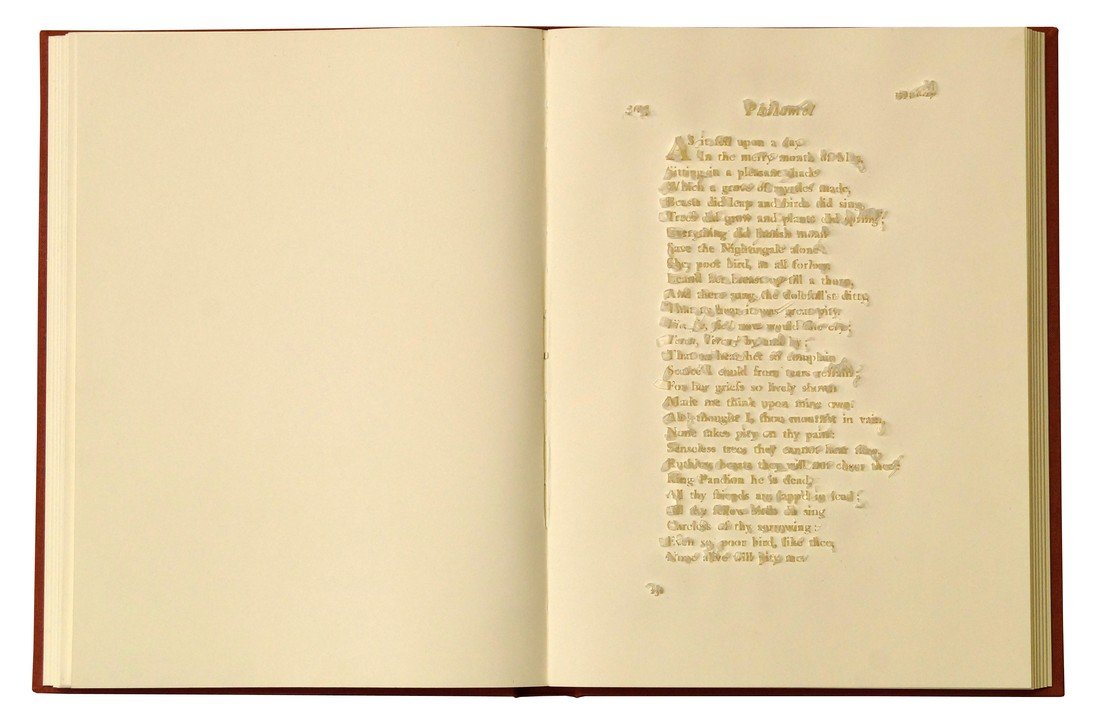 Philomel
As it fell upon a day
In the merry month of May,
Sitting in a pleasant shade
Which a grove of myrtles made,
Beasts did leap and birds did sing,
Trees did grow and plants did spring;
Everything did banish moan
Save the Nightingale alone.
She, poor bird, as all forlorn,
Lean'd her breast up-till a thorn,
And there sung the dolefull'st ditty
That to hear it was great pity.
Fie, fie, fie, now would she cry;
Teru, Teru, by and by:
That to hear her so complain
Scarce I could from tears refrain;
For her griefs so lively shown
Made me think upon mine own.
Ah, thought I, thou mourn'st in vain,
None takes pity on thy pain:
Senseless trees, they cannot hear thee,
Ruthless beasts, they will not cheer thee;
King Pandion he is dead,
All thy friends are lapp'd in lead:
All thy fellow birds do sing
Careless of thy sorrowing:
Even so, poor bird, like thee,
None alive will pity me.